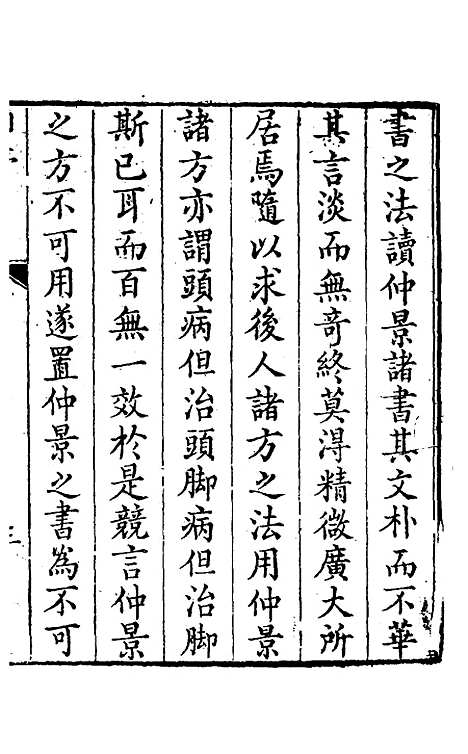 書之法讀仲景諸書其文朴而不華
其言淡而無奇終莫得精微廣大所
居焉隨以求後人諸方之法用仲景
諸方亦謂頭病但治頭脚病但治脚
斯已耳而百無一效於是競言仲景
之方不可用遂置仲景之書為不可